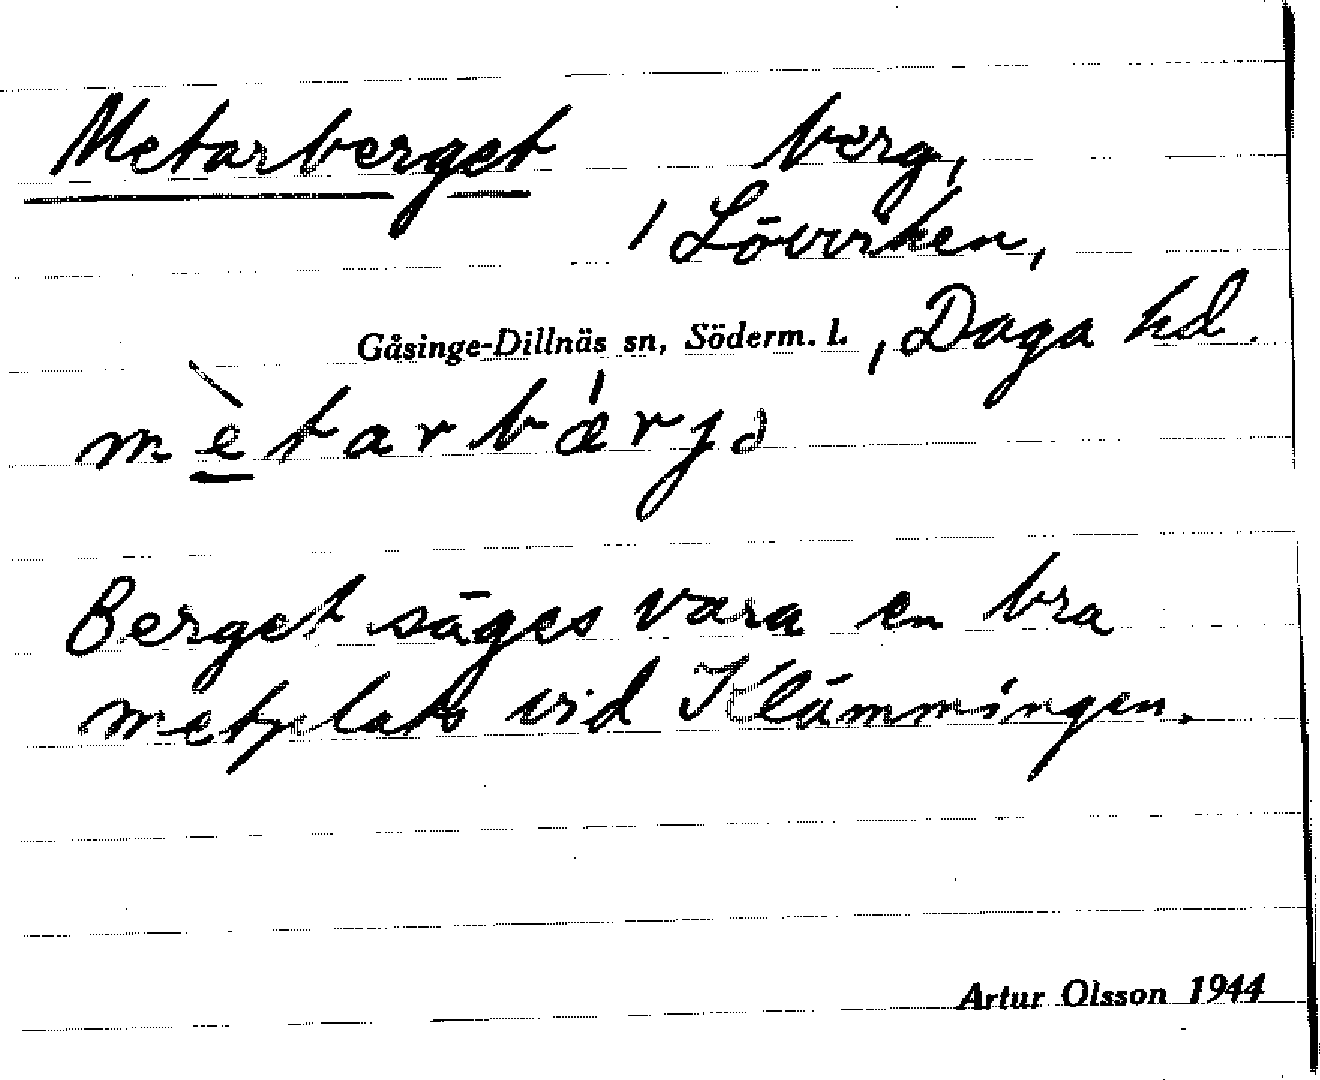 Metarberget berg,
/ Lövviken,
Gåsinge-Dillnäs sn, Söderm. l. , Daga hd.
mètarbǽrjə
Berget säges vara en bra
metplats vid Klämmingen.
Artur Olsson 1944